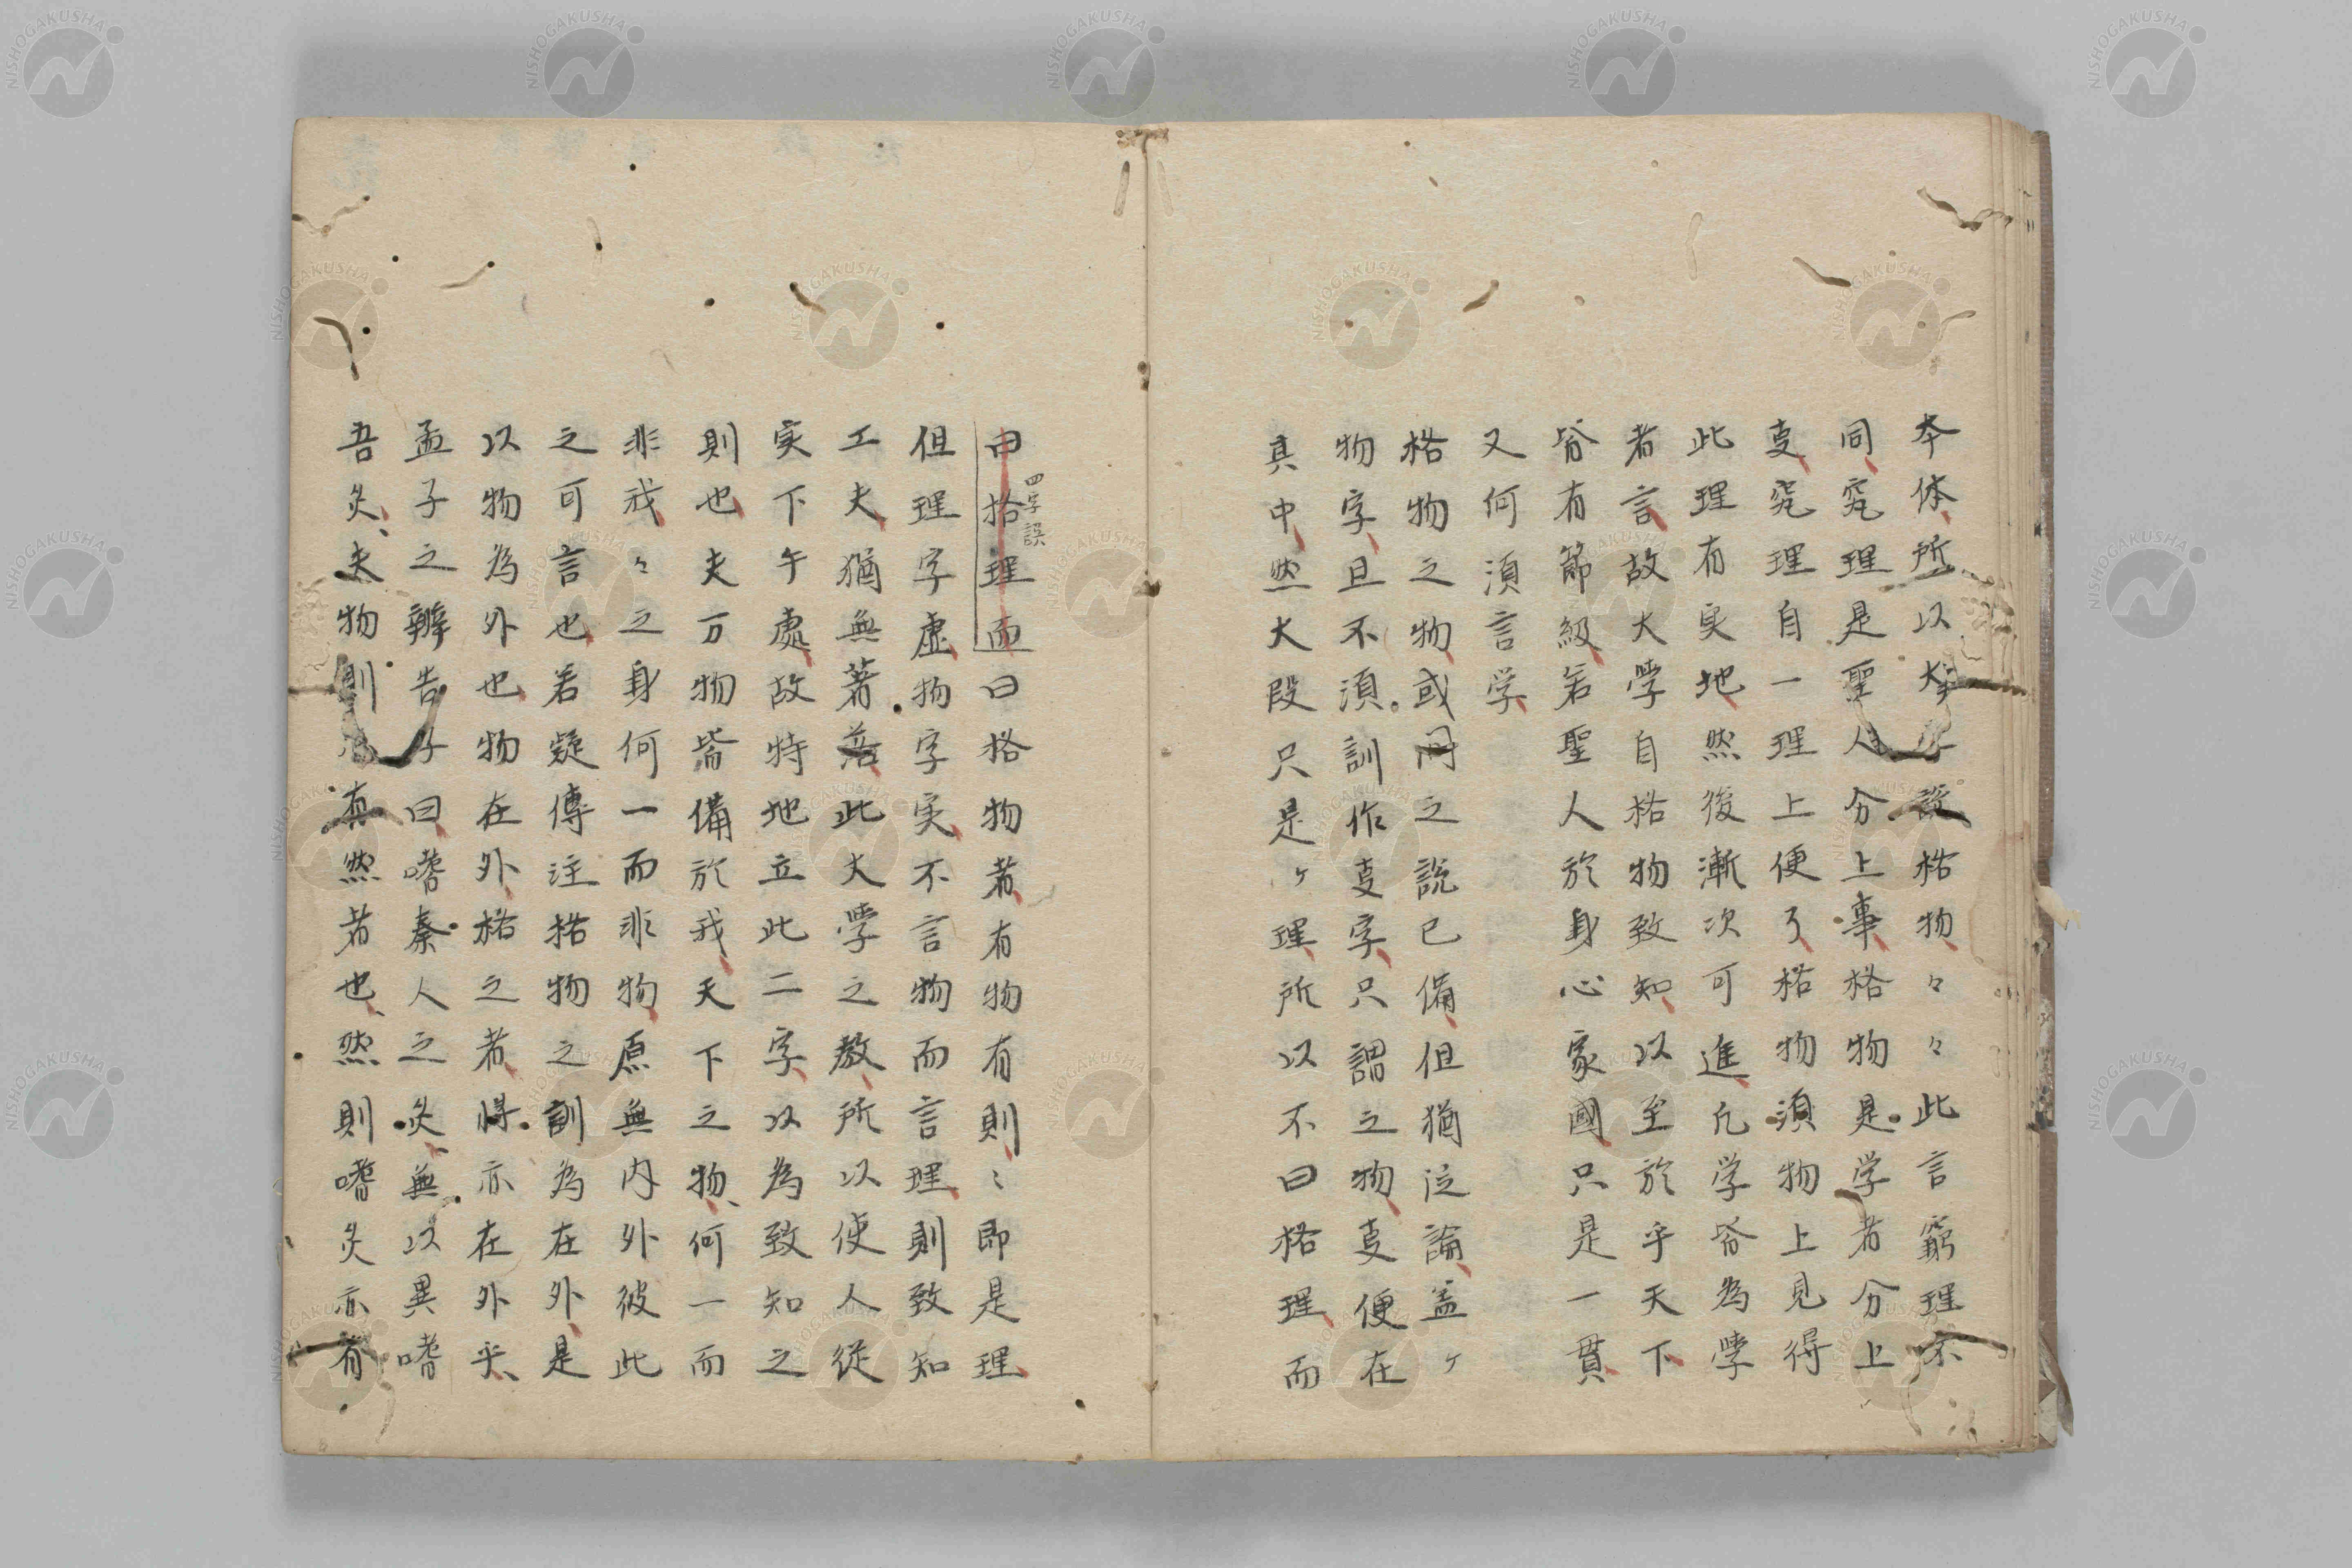 本体所以大学説格物々々此言窮理不
同究理是聖人分上事格物是学者分上
叓究理自一理上便了格物須物上見得
此理有実地然後漸次可進凡学皆為学
者言故大学自格物致知以至於乎天下
皆有節級若聖人於身心家國只是一貫
又何須言学
格物之物或問之説已備但猶泛論盖ケ
物字且不須訓作叓字只謂之物叓便在
其中然大段只是ケ理所以不曰格理而
曰格理而曰格物者有物有則〻即是理
四字誤
但理字虚物字実不言物而言理則致知
工夫猶無著落此大学之教所以使人從
実下午處故特地立此二字以為致知之
則也夫万物皆備於我天下之物何一而
非我々之身何一而非物原無内外彼此
之可言也若疑傳注格物之訓為在外是
以物為外也物在外格之者将亦在外乎
孟子之辨告子曰嗜秦人之炙無以異嗜
吾炙夫物則亦有然者也然則嗜炙亦有